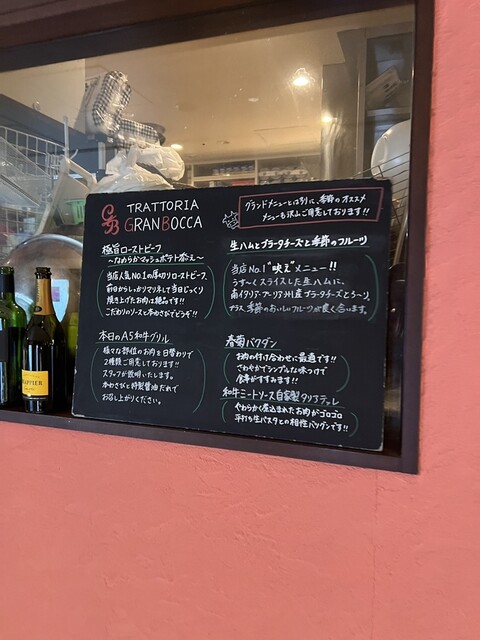 TRATTORIA
GRANBOCCA
グランドメニューとは別に、季節のオススメ
メニューも沢山ご用意しております!!
極旨ローストビーフ
〜なめらかマッシュポテト添え〜
当店人気No.1の厚切りローストビーフ、
前日からしっかりマリネして当日じっくり
焼き上げたお肉は絶品です!!
こだわりのソースと本わさびでどうぞ!!
本日のA5和牛グリル
様々な部位のお肉を日替わりで
2種類ご用意しております!!
スタッフが説明いたします。
本わさびと特製醤油だれで
お召し上がりください。
生ハムとブラータチーズと季節のフルーツ
当店No.1"映え"メニュー!!
うす〜くスライスした生ハムに、
南イタリア・プーリア州産ブラータチーズとろ〜り。
プラス季節のおいしいフルーツが良く合います。
春菊バクダン
お肉の付け合わせに最適です!!
さわやかでシンプルな味つけで
食事がすすみます!!
和牛ミートソース自家製タリアテッレ
やわらかく煮込まれたお肉がゴロゴロ
平打ち生パスタとの相性バツグンです!!